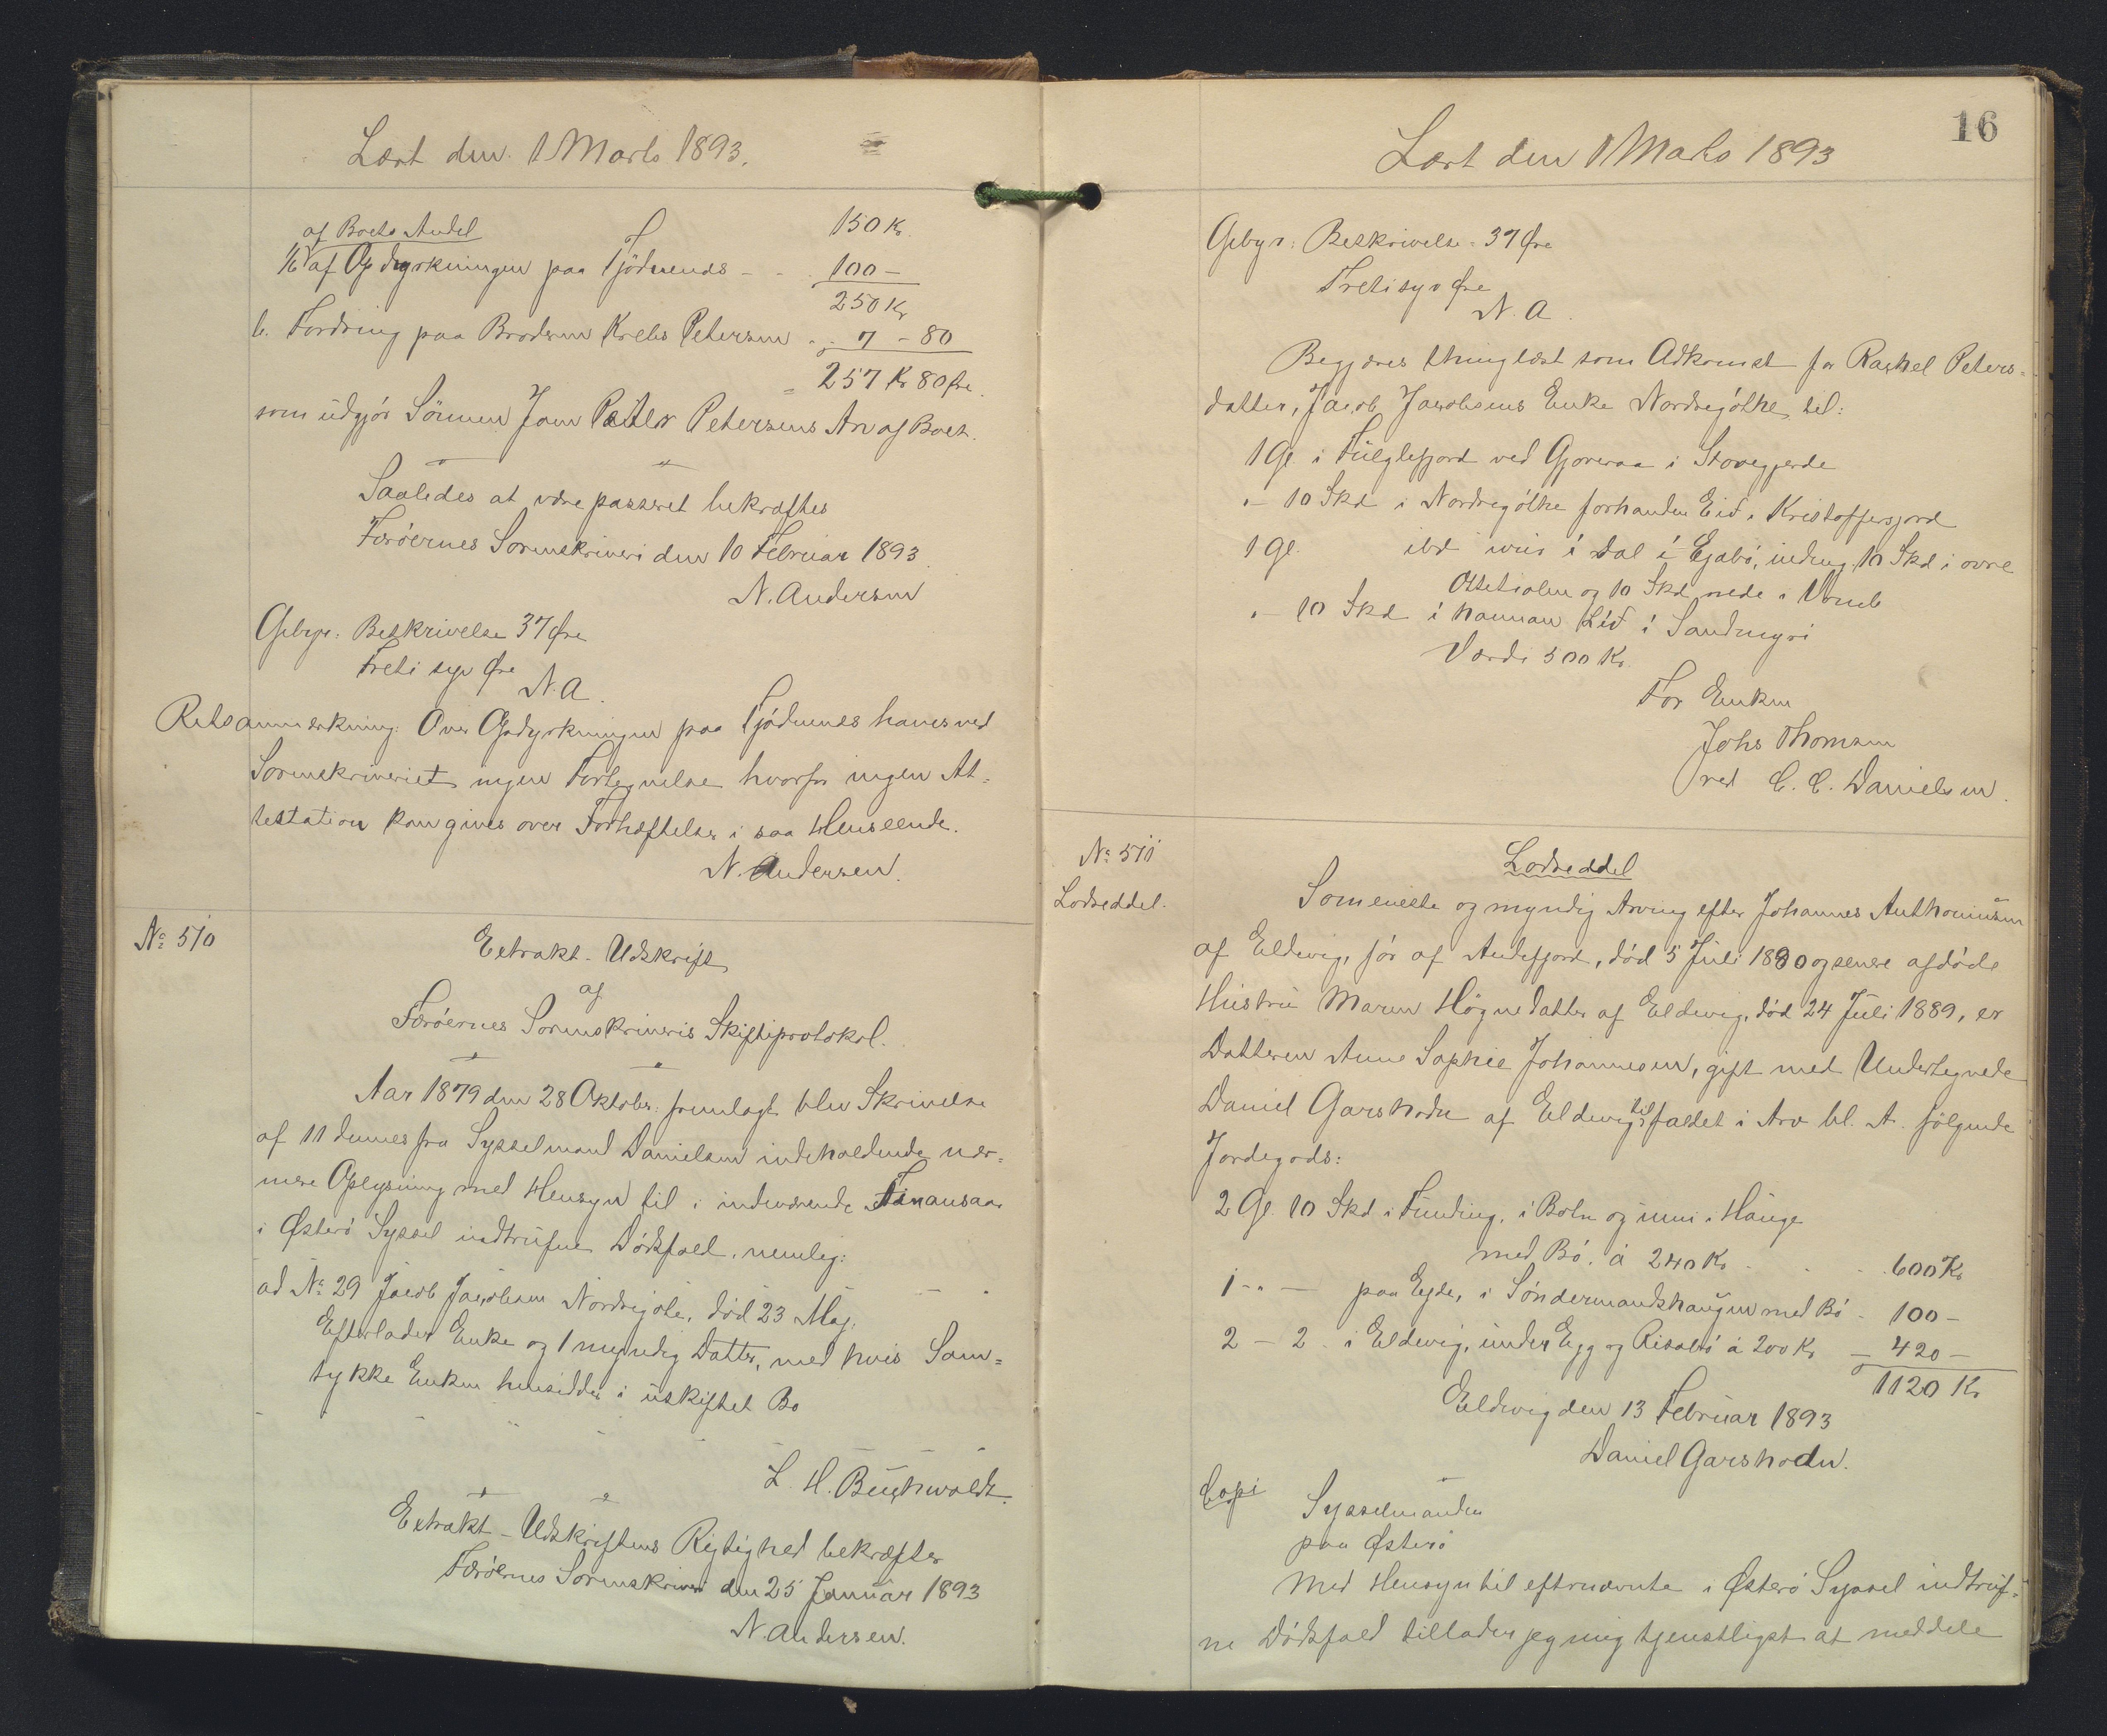 Læst den 1 Marts 1893.
af Boets Andel 150 Kr.
1/6 af Opdyrkningen paa Tjödnenes - - 100 -
250 Kr
b. Fordring paa Broderen Krebs Petersen - 7 - 80
= 257 Kr 80 Øre.
som udgjör Sönnen Joen Peter Petersens Arv af Boet.
Saaledes at være passeret bekræftes
Færöernes Sorenskriveri den 10 Februar 1893
N. Andersen
Gebyr: Beskrivelse 37 Øre
Treti syv Øre
N. A.
Retsanmærkning: Over Opdyrkningen paa Tjödnenes haves ved
Sorenskriveriet ingen Fortegnelse hvorfor ingen At-
testation kan gives over Forhæftelser i saa Henseende.
N. Andersen.
No 510
Extrakt-Udskrift
af
Færöernes Sorenskriveris Skifteprotokol.
Aar 1879 den 28 Oktober fremlagt blev Skrivelse
af 11 dennes fra Sysselmand Danielsen indeholdende nær-
mere Oplysning med Hensyn til i indeværende Finansaar
i Østerö Syssel indtrufne Dödsfald, nemlig:
ad No 29 Jacob Jacobsen Nordregöte, död 23 Maj.
Efterlader Enke og 1 myndig Datter, med hvis Sam-
tykke Enken hensidder i uskiftet Bo
L. H. Buchwaldt.
Extrakt-Udskriftens Rigtighed bekræfter
Færöernes Sorenskriveri den 25 Januar 1893
N. Andersen.
16
Læst den 1 Marts 1893
Gebyr: Beskrivelse = 37 Øre
Tretisyv Øre
N. A.
Begjæres thinglæst som Adkomst for Rachel Peters-
datter, Jacob Jacobsens Enke Nordregöthe til:
1 Gl. i Fuglefjord ved Gjoveraa i Stovegjerde
" - 10 Skd i Nordregöthe forhanden Eid i Kristoffersjord
1 Gl. ibd uvis i Dal i Egabö, indeng 10 Skd i övre
og 10 Skd nede i
" - 10 Skd i hannan Lid i Sandmyri
Værdi 500 Kr.
For Enken
Johs Thomsen
ved C. C. Danielsen.
No 511
Lodseddel.
Lodseddel
Som eneste og myndig Arving efter Johannes Anthoniusen
af Eldevig, för af Andefjord, död 5 Juli 1880 og senere afdöde
Hustru Maren Högnedatter af Eldevig, död 24 Juli 1889, er
Datteren Anne Sophie Johannesen, gift med Undertegnede
Daniel Garshodn af Eldevig tilfaldet i Arv bl. A. fölgende
Jordegods:
2 Gl. 10 Skd i Funding, i Botn og inni i Hauge
med Bö. á 240 Kr - - - 600 Kr
1 - " - paa Eyde, i Söndermandshaugen med Bö - 100 -
2 - 2 i Eldevig, under Egg og Risabö á 200 Kr - 420 -
1120 Kr
Eldevig den 13 Februar 1893
Daniel Garshodn.
Copi
Sysselmanden
paa Østerö
Med Hensyn til eftennævnte i Østerö Syssel indtruf-
ne Dödsfald tillader jeg mig tjenstligst at meddele